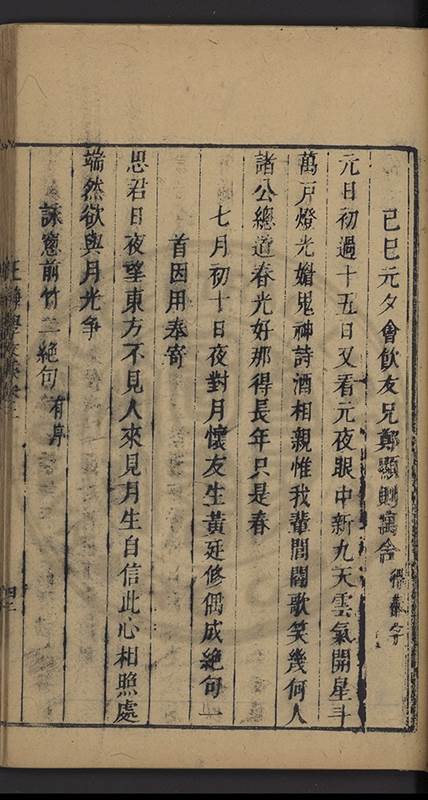 己巳元夕會飲友兄鄭顯則寓舍 得春字
元日初過十五日又看元夜眼中新九天雲氣開星斗
萬戶燈光媚鬼神詩酒相親惟我輩閭閻歌笑幾何人
諸公總道春光好那得長年只是春
七月初十日夜對月懷友生黃廷修偶成絕句一
首因用奉寄
思君日夜望東方不見人來見月生自信此心相照處
端然欲與月光爭
詠窻前竹二絕句 有序